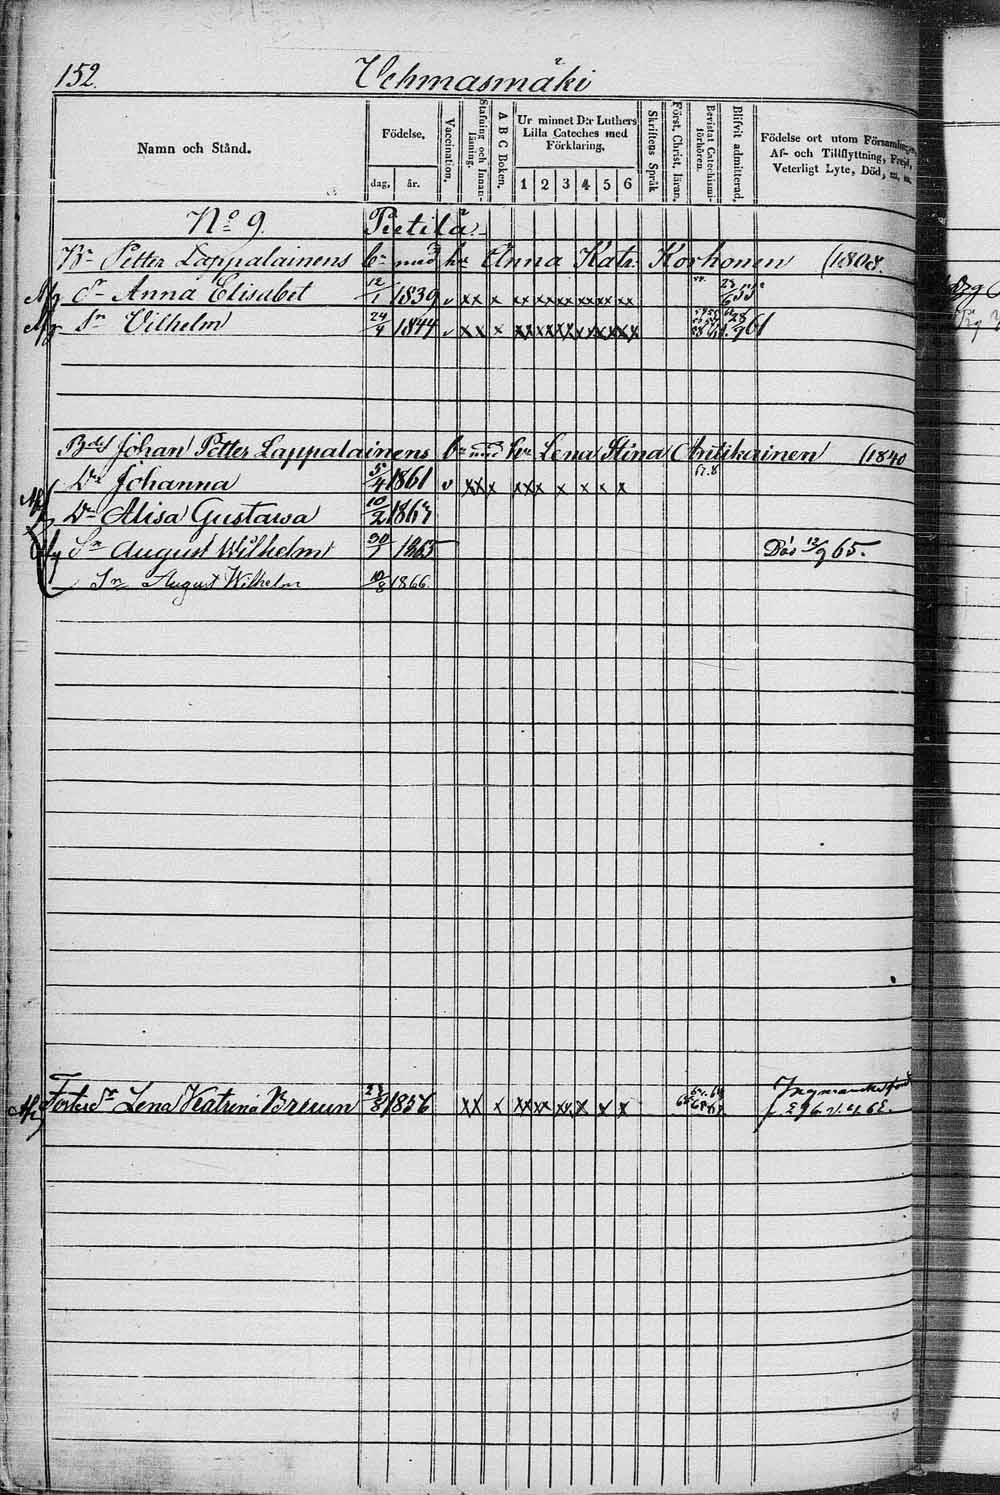 152. Vehmasmäki
Namn och Stånd.
Födelse.
dag. år.
Vaccination.
Stafning och Innanläsning.
A B C Boken.
Ur minnet D:r Luthers Lilla Cateches med Förklaring.
1 2 3 4 5 6
Skriftens Språk
Först. Christ. läran.
Bevistat Catechismiförhören.
Blifvit admitterad.
Födelse ort utom Församlingen,
Af- och Tillflyttning, Frejd,
Veterligt Lyte, Död, m. m.
No 9. Pietilä
Bn Petter Lappalainens bn med hu Anna Katr. Korhonen (1808.
Dr Anna Elisabet 12/1 1839 v xx x xx xx xx xx xx xx 23/6 55
Sn Vilhelm 24/4 1844 v xx x 28/9 61
Bds Johan Petter Lappalainens bn med hu Lena Stina Antikainen (1840
Dr Johanna 5/4 1861 v xxx xxx x x x x 67.8
Dr Alisa Gustawa 10/2 1863
Sn August Wilhelm 30/7 1865 Död 13/9 65.
Sn August Wilhelm 10/8 1866
Foster Dr Lena Katrina Bruun 23/8 1856 xx x xx xx xx x x x